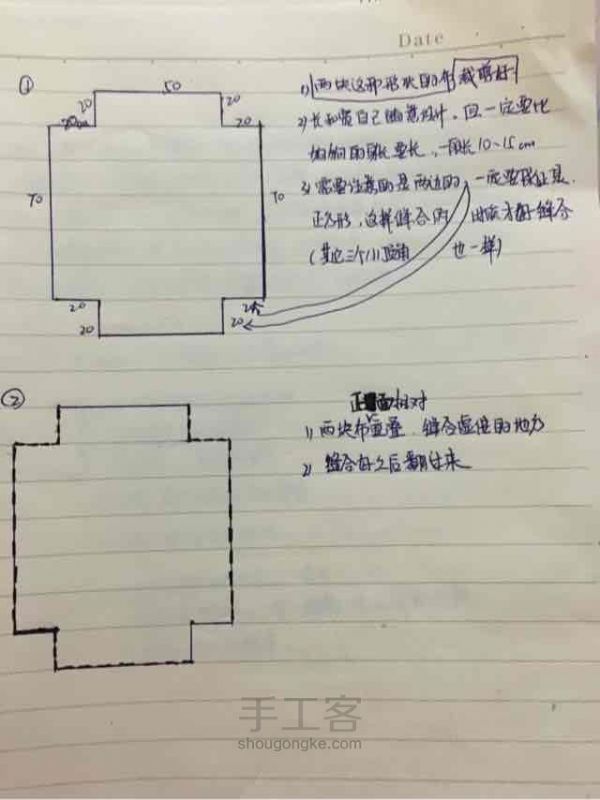 Date
①
50
20
20
20
20
70
70
20
20
20
20
1) 两块这种形状的布裁剪好
2) 长和宽自己随意设计，但一定要比
狗狗的身长要长，一般长10~15cm
3) 需要注意的是两边的，一定要保证是
正方形，这样缝合的时候才好缝合
(其它三个小顶角也一样)
②
正面相对
1) 两块布重叠，缝合虚线的地方
2) 缝合好之后翻过来
手工客
shougongke.com